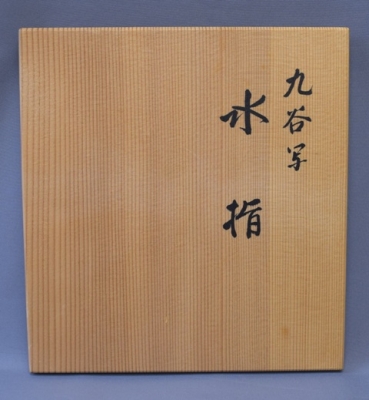 九谷写
水指